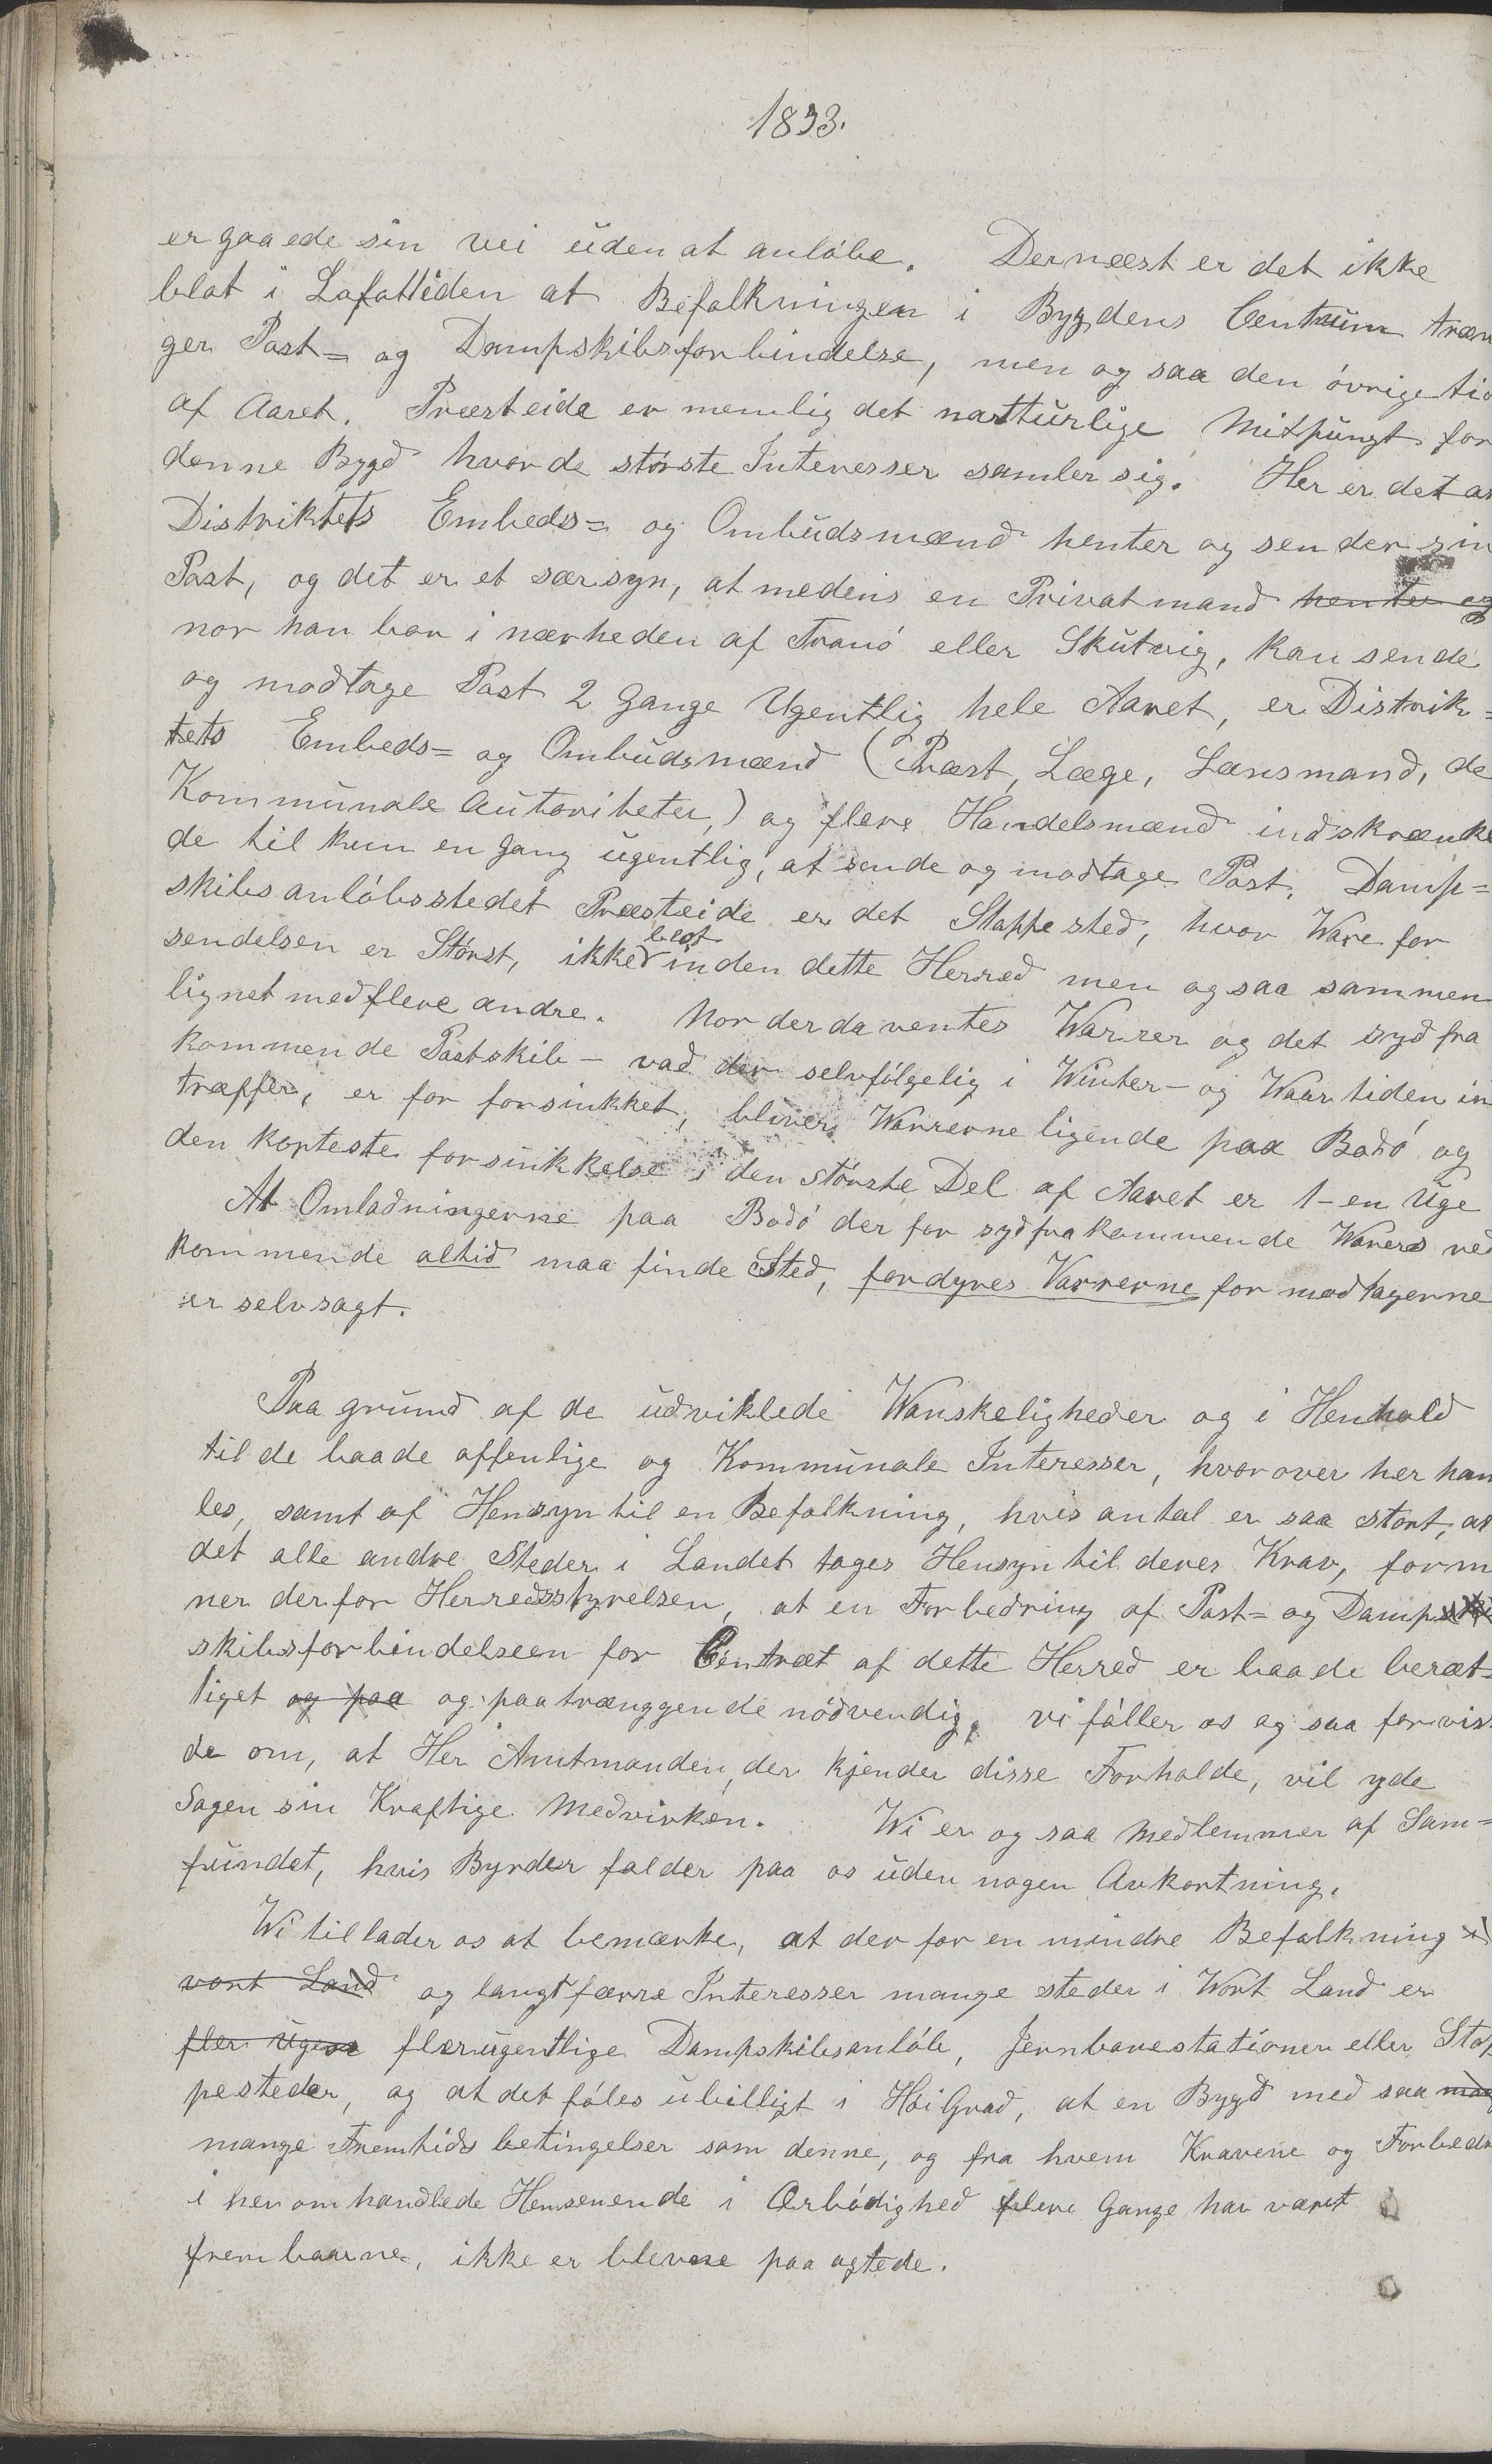 1893.
er gaaede sin vei uden at anlöbe. Dernæst er det ikke
blot i Lofottiden at Befolkningen i Bygdens Centrum træn
ger Post= og Dampskibsforbindelse, men og saa den övrige tid
af Aaret. Præsteide er nemlig det natturlige Mitpungt for
denne Bygd hvor de störste Interesser samler sig. Her er det at
Distriktets Embeds= og Ombudsmænd henter og sender sin
Post, og det er et særsyn, at medens en Privatmand henter og
nor han bor i nærheden af Tranö eller Skutvig, kan sende
og modtage Post 2 Gange Ugentlig hele Aaret, er Distrik=
tets Embeds= og Ombudsmænd (Præst, Læge, Lænsmand, de
Kommunale Autoriteter,) og flere Handelsmænd indskrænke
de til kun en Gang ugentlig, at sende og modtage Post. Damp=
skibsanlöbsstedet Præsteide er det Stoppested, hvor Vare for
sendelsen er Störst, ikke blot inden dette Herred men og saa sammen
lignet med flere andre. Nor der da ventes Warrer og det syd fra
kommende Postskib - vad der selvfölgelig i Winter- og Waartiden in
træffer, er for forsinkket, bliver Warrerne ligende paa Bodö og
den korteste forsinkkelse i den störste Del af Aaret er 1-en Uge
At Omladningerne paa Bodö der for sydfrakommende Warers ved
kommende altid maa finde Sted, fordyres Varrerne for modtagerne
er selvsagt.
Paa grund af de udviklede Wanskeligheder og i Henhold
til de baade offenlige og Kommunale Interesser, hvorover her han
les, samt af Hensyn til en Befolkning, hvis antal er saa stort, at
det alle andre Steder i Landet tages Hensyn til deres Krav, form
ner derfor Herredsstyrelsen, at en Forbedring af Post= og Damps
skibsforbindelseen for Centræt af dette Herred er baade beræt=
tiget og paa og paatrænggende nödvendig, vi föller os og saa forvis
de om, at Her Amtmanden, der kjender disse Forholde, vil yde
Sagen sin Kraftige Medvirken. Wi er og saa Medlemmer af Sam=
fundet, hvis Byrder falder paa os uden nogen Avkortning.
Wi tillader os at bemærke, at der for en mindre Befolkning i
vort Land og langt færre Interesser mange steder i Wort Land er
fler Ugene flerugentlige Dampskibsanlöb, Jernbanestationer eller Stop
pesteder, og at det föles ubilligt i Höi Grad, at en Bygd med saa mag
mange Fremtids betingelser som denne, og fra hvem Kravene og Forbedr
i her omhandlede Henseende i Ærbödighed flere Gange har været
frembaarne, ikke er blevne paa agtede.